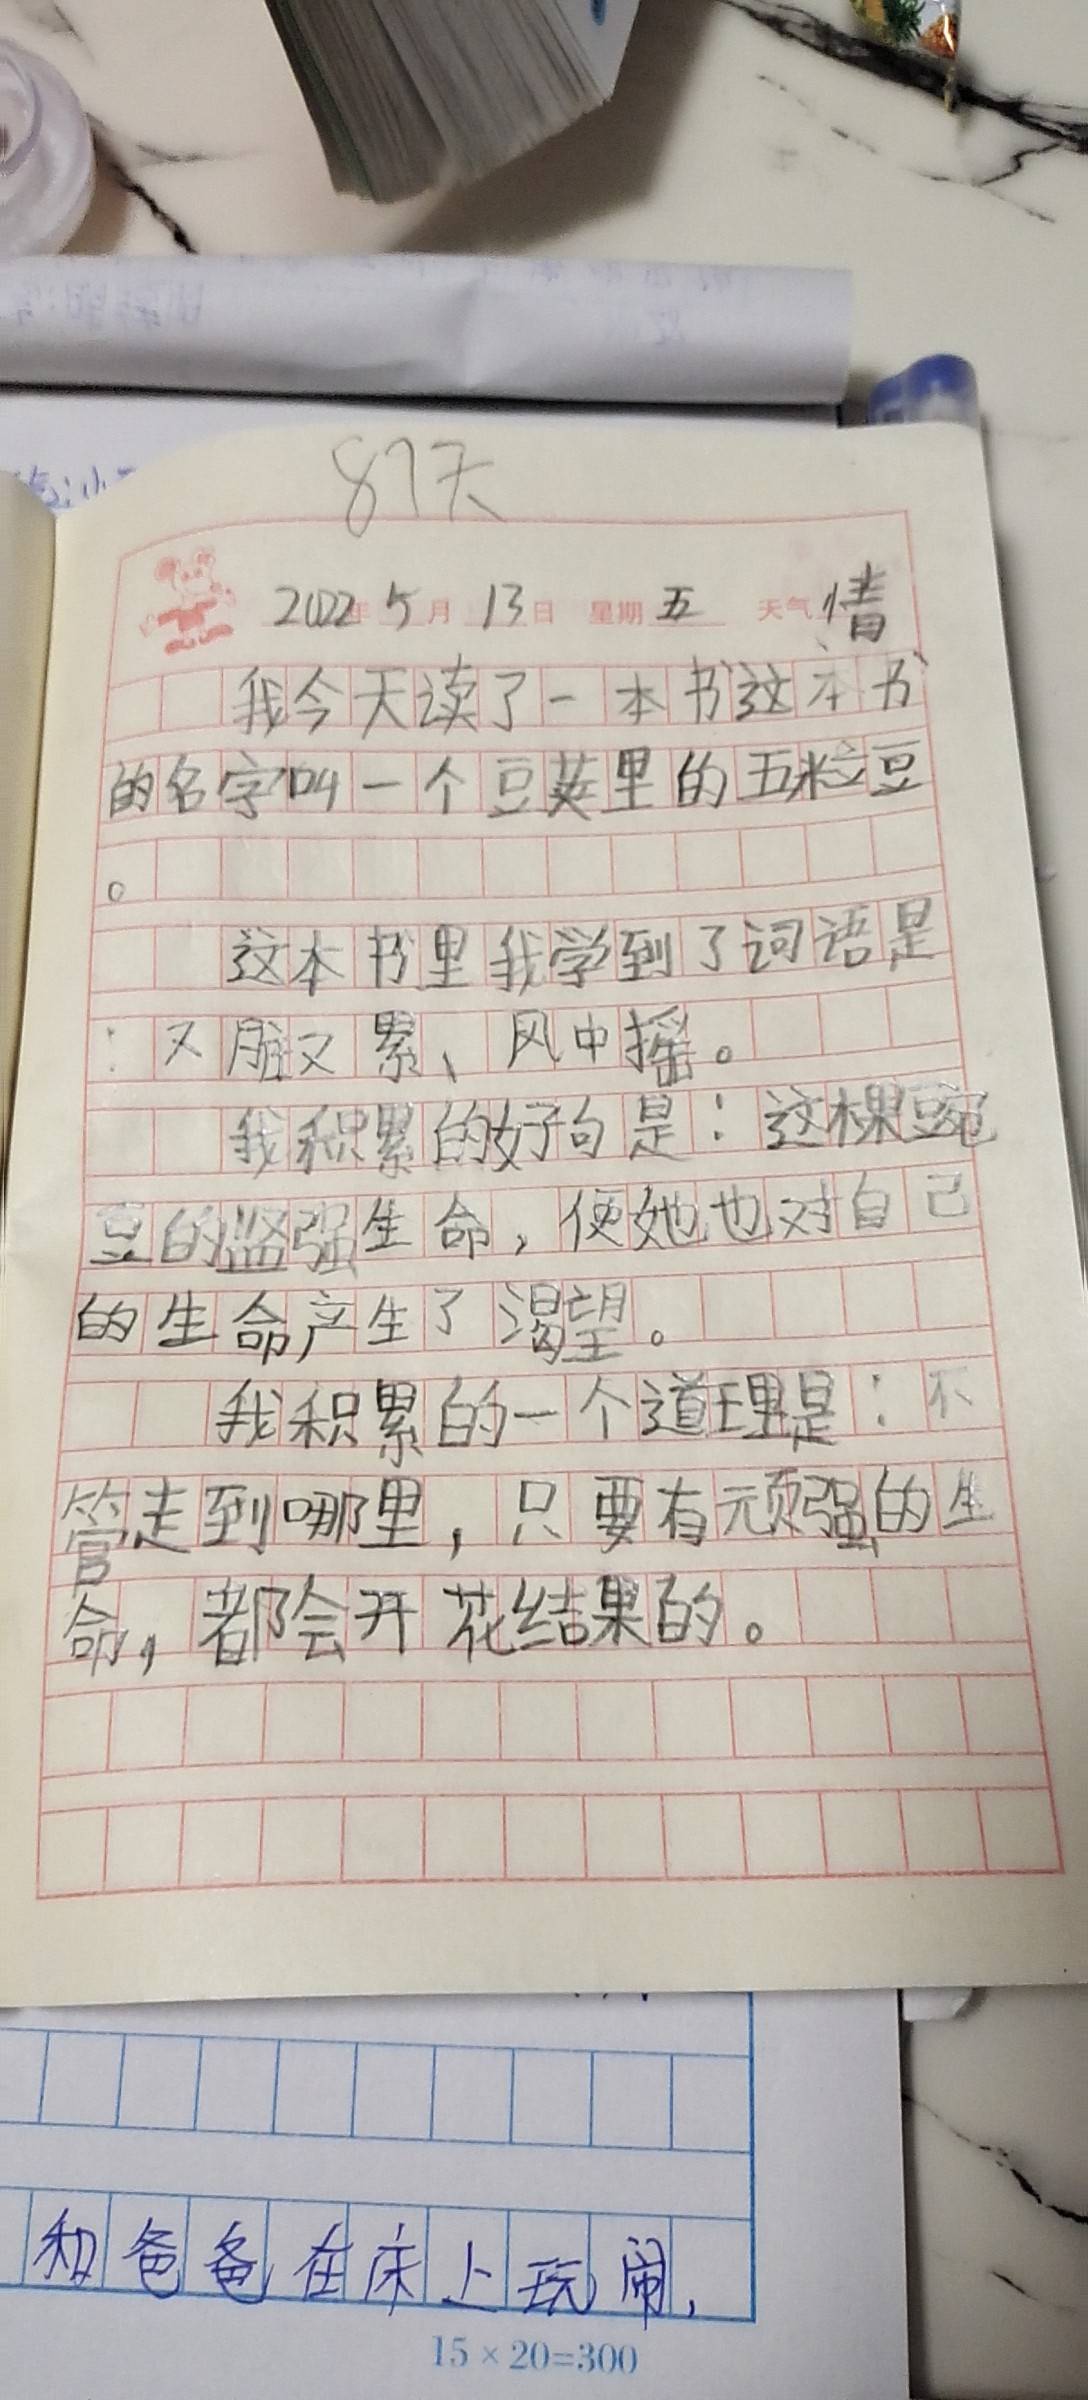 87天
2022年5月13日 星期五 天气情
我今天读了一本书这本书
的名字叫一个豆荚里的五粒豆
。
这本书里我学到了词语是
：又脏又累、风中摇。
我积累的好句是：这棵豌
豆的坚强生命，使她也对自己
的生命产生了渴望。
我积累的一个道理是：不
管走到哪里，只要有顽强的生
命，都会开花结果的。
和爸爸在床上玩闹，
15×20=300